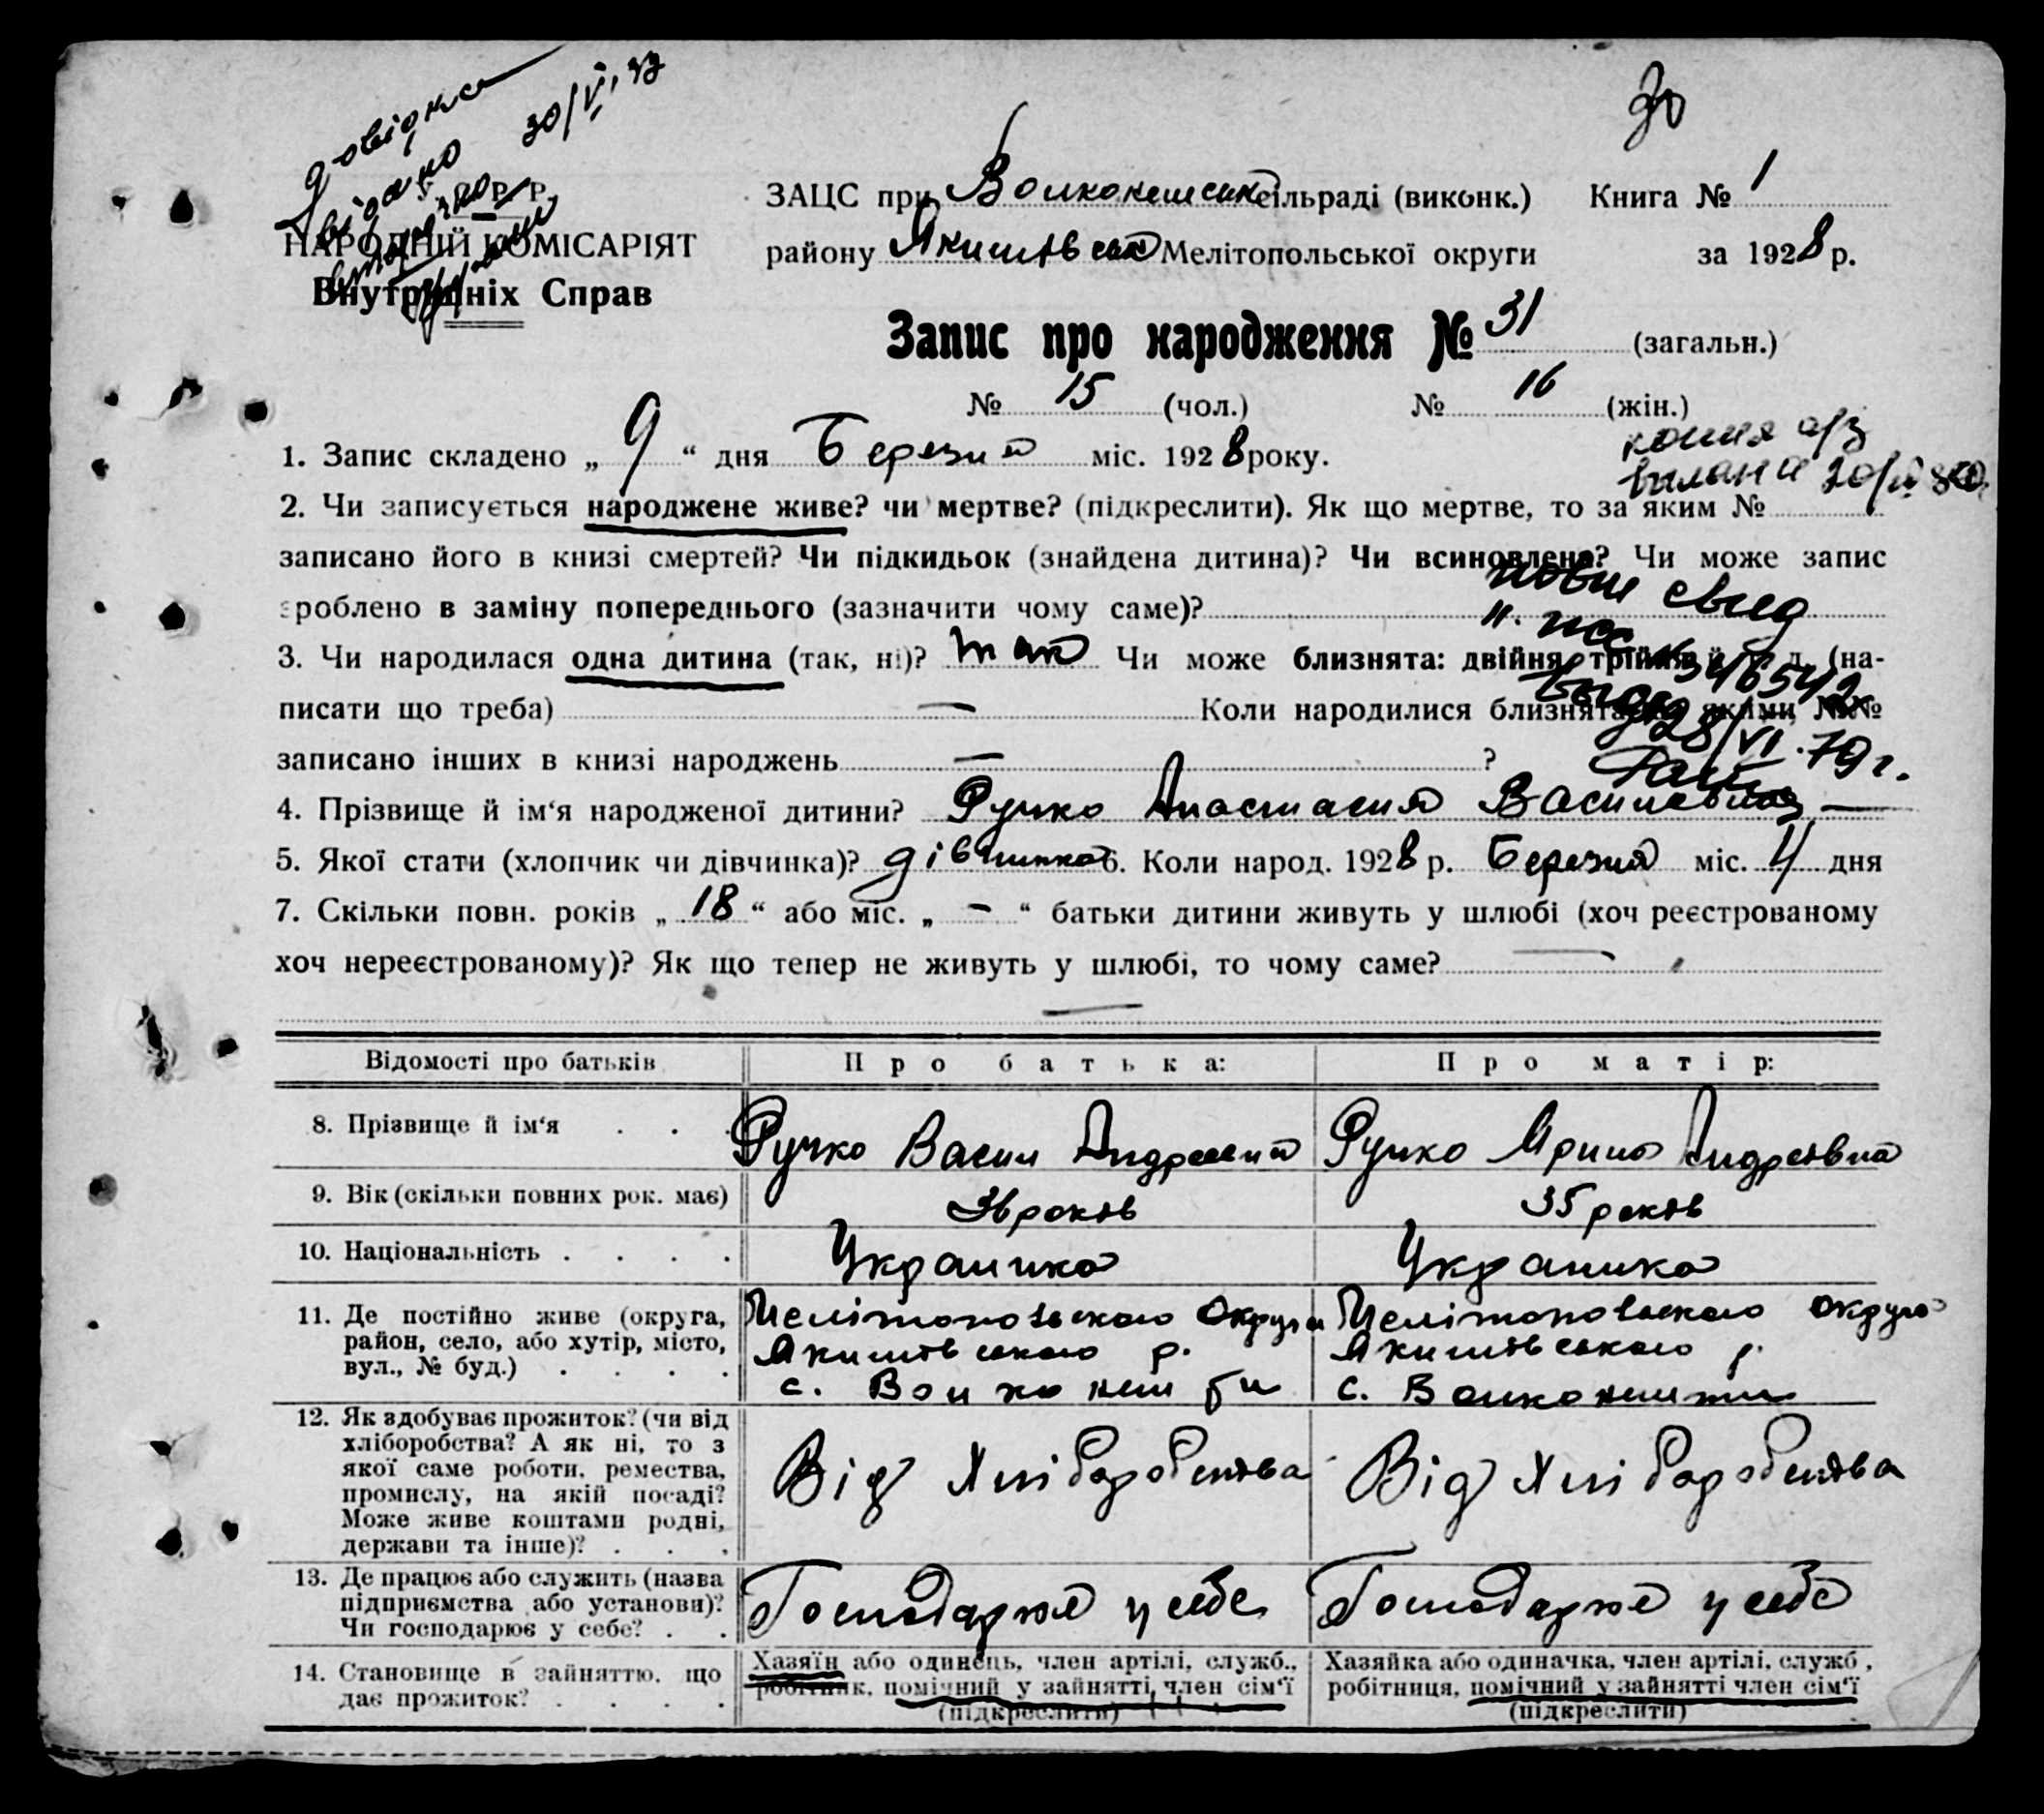 30
довідка
видано 30/VI
У. С. Р. Р.
НАРОДНІЙ КОМІСАРІЯТ
Внутрішніх Справ
ЗАЦС при Волконешській сільраді (виконк.) Книга № 1
району Якимівськ Мелітопольської округи за 1928 р.
Запис про народження № 31 (загальн.)
№ 15 (чол.) № 16 (жін.)
1. Запис складено „9“ дня Березня міс. 1928 року.
копия а/з
2. Чи записується народжене живе? чи мертве? (підкреслити). Як що мертве, то за яким №
записано його в книзі смертей? Чи підкидьок (знайдена дитина)? Чи всиновлена? Чи може запис
зроблено в заміну попереднього (зазначити чому саме)?
3. Чи народилася одна дитина (так, ні)? так Чи може близнята: двійня, трійня й т. д. (на-
писати що треба) — Коли народилися близнята за якими №№
записано інших в книзі народжень — ?
28/VI.79г.
4. Прізвище й ім‘я народженої дитини? Ручко Анастасия Василевна —
5. Якої стати (хлопчик чи дівчинка)? дівчинка 6. Коли народ. 1928 р. Березня міс. 4 дня
7. Скільки повн. років „18“ або міс. „ - “ батьки дитини живуть у шлюбі (хоч реєстрованому
хоч нереєстрованому)? Як що тепер не живуть у шлюбі, то чому саме? —
—
Відомості про батьків Про батька: Про матір:
8. Прізвище й ім‘я . . . Ручко Васил Андреевич Ручко Ярина Андреівна
9. Вік (скільки повних рок. має) 36 років 35 років
10. Національність . . . . Украинка Украинка
11. Де постійно живе (округа, Мелітопольскаю Округи Мелітопольскаю округа
район, село, або хутір, місто, Якимівськаю р. Якимівськаю р.
вул., № буд.) . . . . с. Волконешти с. Волконешти
12. Як здобуває прожиток? (чи від
хліборобства? А як ні, то з
якої саме роботи, ремества, Від Хліборобства Від Хліборобства
промислу, на якій посаді?
Може живе коштами родні,
держави та інше)? . . .
13. Де працює або служить (назва
підприємства або установи)? Господарюя у себе Господарюя у себе
Чи господарює у себе? . .
14. Становище в зайняттю, що Хазяїн або одинець, член артілі, служб., Хазяйка або одиначка, член артілі, служб.,
дає прожиток? . . . . робітник, помічний у зайнятті, член сім‘ї робітниця, помічний у зайнятті член сім‘ї
(підкреслити) (підкреслити)